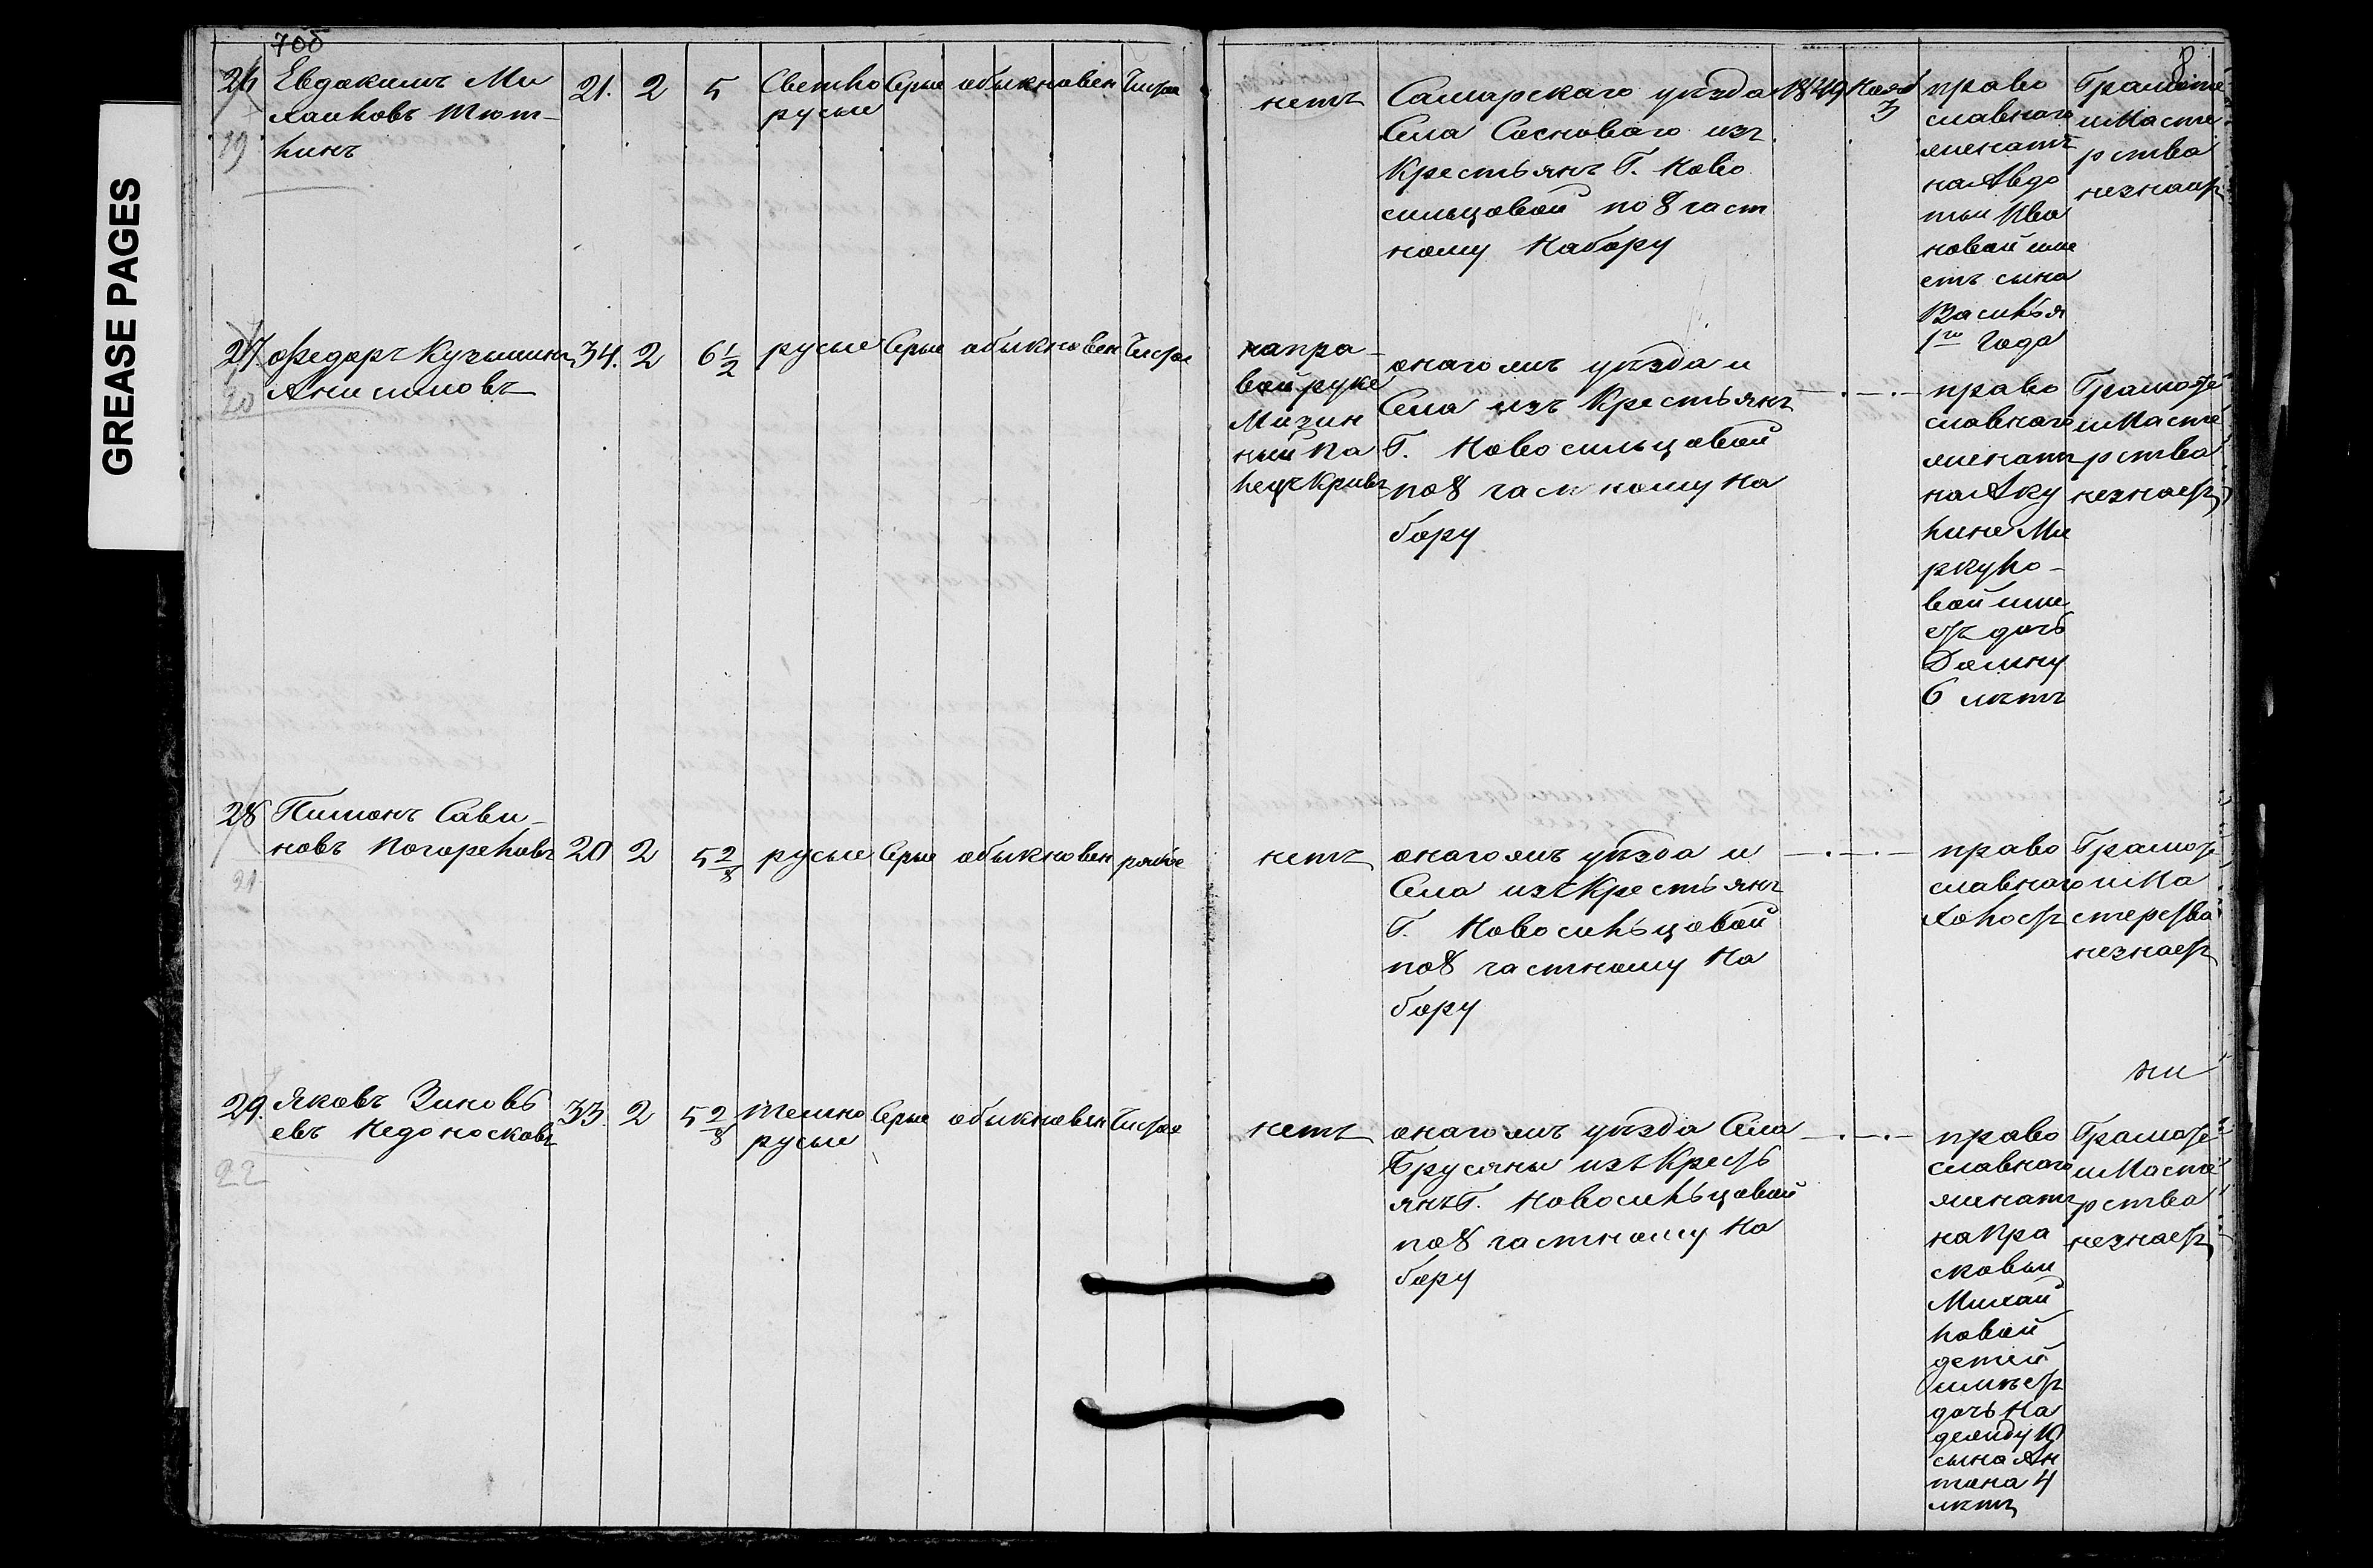 GREASE PAGES
7об
8
26 Евдокимъ Ми
хайловъ Тют-
кинъ
19
21. 2 5 Светло Серые обыкновен Чистое
русые
нетъ
Самарскаго уѣзда
Села Сосноваго изъ
Крестьянъ Г. Ново
сильцовой по 8 част
ному Набору
1849 Нояб
3
право
славнаго
женатъ
на Авдо
тьи Ива
новой име
етъ сына
Василья
1го Года
Грамоте
и Масте
рства
незнаетъ
27. Федоръ Кузьминъ
Анисимовъ
20
34. 2 6 1/2 русые Серые обыкновен Чистое
на пра-
вой руке
Мизин
ный па
лецъ Кривъ
онаго жъ уѣзда и
Села изъ Крестьянъ
Г. Новосильцовой
по 8 частному На
бору
право
славнаго
женатъ
на Аку
лине Ми
ркуло-
вой име
етъ дочь
Домну
6 лѣтъ
Грамоте
и Масте
рства
незнаетъ
28 Пимонъ Сави-
новъ Погореловъ
21
20 2 5 2/8 русые Серые обыкновен рябое
нетъ
онаго жъ уѣзда и
Села изъ Крестьянъ
Г. Новосильцовой
по 8 частному На
бору
право
славнаго
холостъ
Грамоте
и Ма
стерства
незнаетъ
29. Яковъ Зиновь
евъ Недоносковъ
22
33. 2 5 2/8 Темно Серые обыкновен Чистое
русые
нетъ
онаго жъ уѣзда Села
Брусяны изъ Кресть
янъ Г. Новосильцовой
по 8 частному На
бору
право
славнаго
женатъ
на Пра
сковьи
Михай
ловой
детей
имѣетъ
дочь На
дежду 10
сына Ан
тона 4
лѣтъ
ни
Грамоте
и Масте
рства
незнаетъ